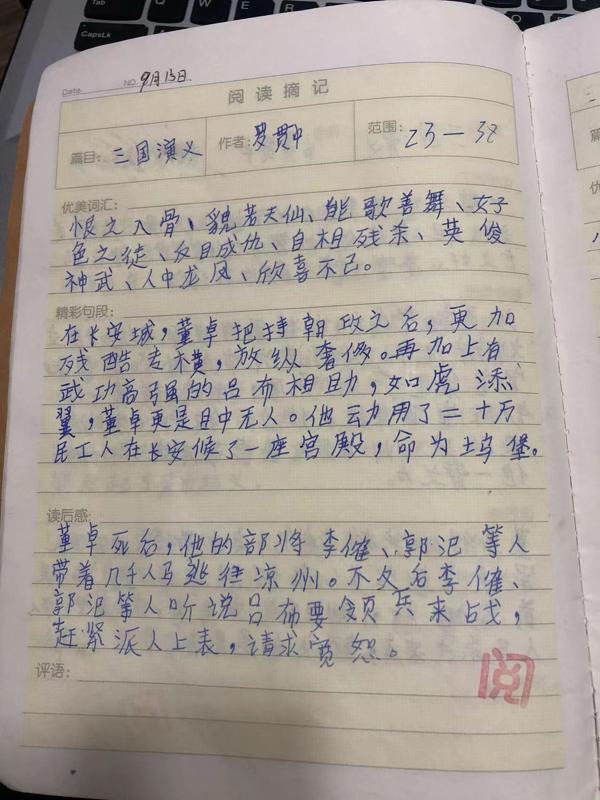 Date.
NO. 9月13日
阅读摘记
篇目: 三国演义 作者: 罗贯中 范围: 23—32
优美词汇:
恨之入骨、貌若天仙、能歌善舞、女子
色之徒、反目成仇、自相残杀、英俊
神武、人中龙凤、欣喜不已。
精彩句段:
在长安城,董卓把持朝政之后,更加
残酷专横,放纵奢侈。再加上有
武功高强的吕布相助,如虎添
翼,董卓更是目中无人。他动用了二十万
民工人在长安候了一座宫殿,命为坞堡。
读后感:
董卓死后,他的部将李傕、郭汜等人
带着几千人马逃往凉州。不久后李傕、
郭汜等人听说吕布要领兵来战,
赶紧派人上表,请求宽恕。
评语:
阅